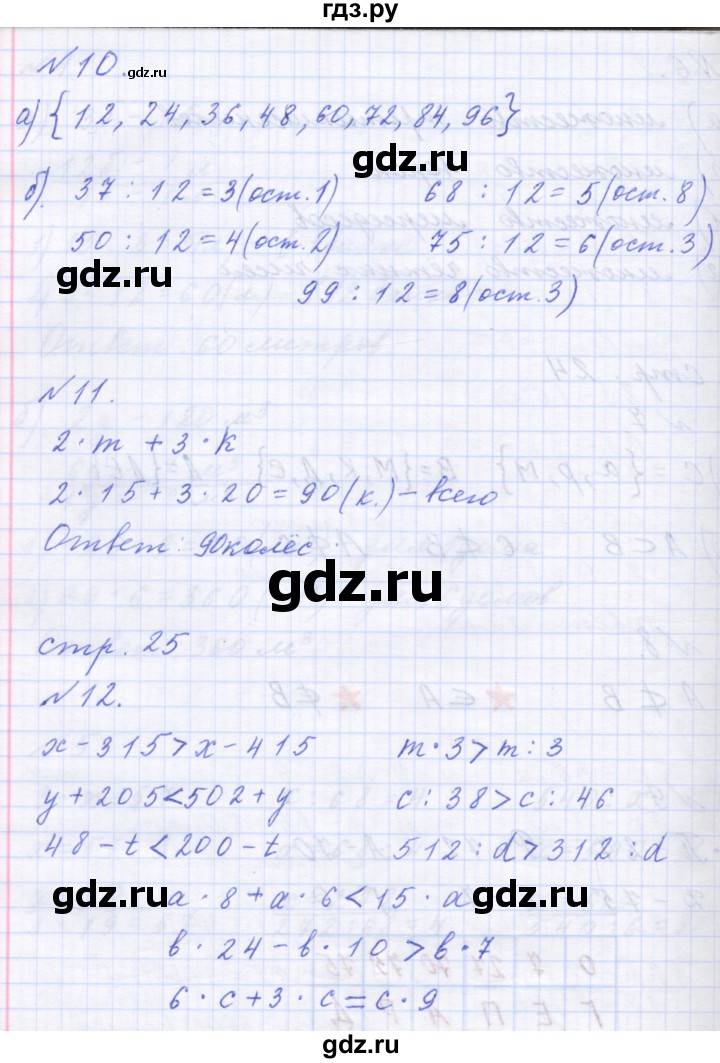 гдз.ру
№10.
gdz.ru
а) {12, 24, 36, 48, 60, 72, 84, 96}
gdz.ru
б) 37 : 12 = 3 (ост. 1) 68 : 12 = 5 (ост. 8)
50 : 12 = 4 (ост. 2) 75 : 12 = 6 (ост. 3)
gdz.ru
99 : 12 = 8 (ост. 3)
№11.
2 · m + 3 · k
2 · 15 + 3 · 20 = 90 (к.) – всего
Ответ: 90 колёс.
gdz.ru
стр. 25
№12.
x - 315 > x - 415 m · 3 > m : 3
y + 205 < 502 + y c : 38 > c : 46
48 - t < 200 - t 512 : d > 312 : d
gdz.ru
a · 8 + a · 6 < 15 · a
gdz.ru
в · 24 - в · 10 > в · 7
6 · c + 3 · c = c · 9
gdz.ru